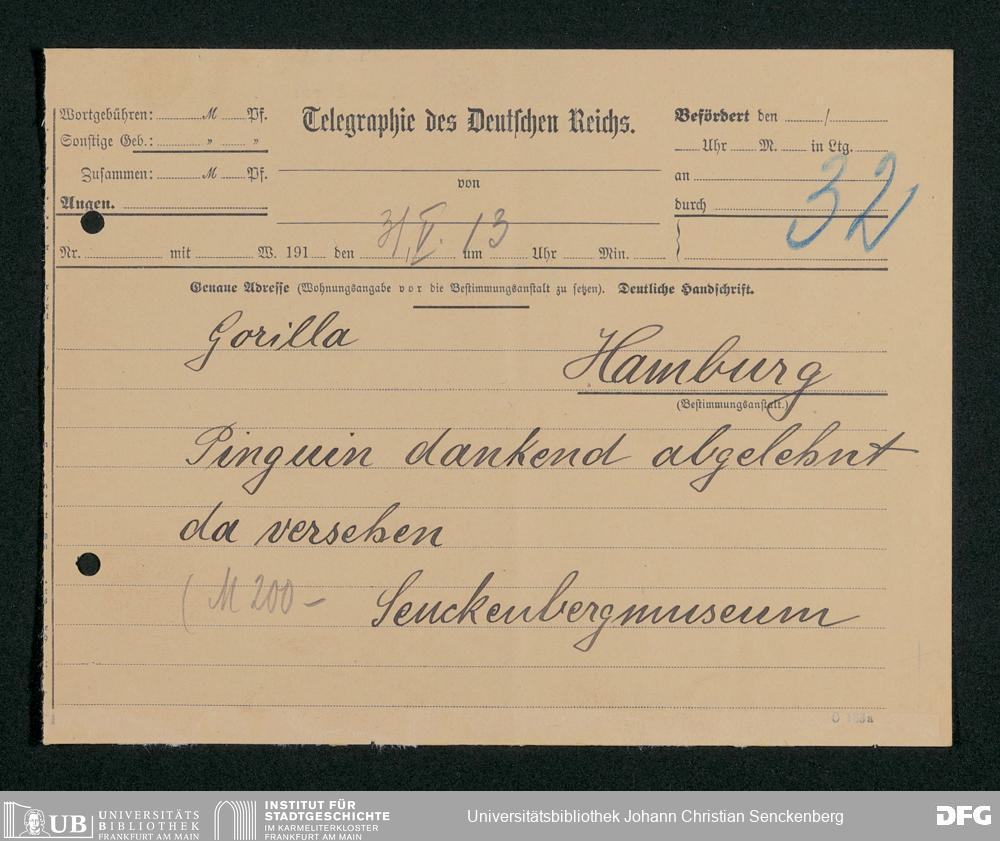 Wortgebühren: M Pf.
Sonstige Geb.: " "
Zusammen: M Pf.
Angen.
Telegraphie des Deutschen Reichs.
von
Befördert den /
Uhr M. in Ltg.
an
durch
32
Nr. mit W. 191 den 31. V. 13 um Uhr Min.
Genaue Adresse (Wohnungsangabe vor die Bestimmungsanstalt zu setzen). Deutliche Handschrift.
Gorilla
Hamburg
(Bestimmungsanstalt.)
Pinguin dankend abgelehnt
da versehen
(M 200 –
Senckenbergmuseum
UB UNIVERSITÄTS
BIBLIOTHEK
FRANKFURT AM MAIN
INSTITUT FÜR
STADTGESCHICHTE
IM KARMELITERKLOSTER
FRANKFURT AM MAIN
Universitätsbibliothek Johann Christian Senckenberg
DFG